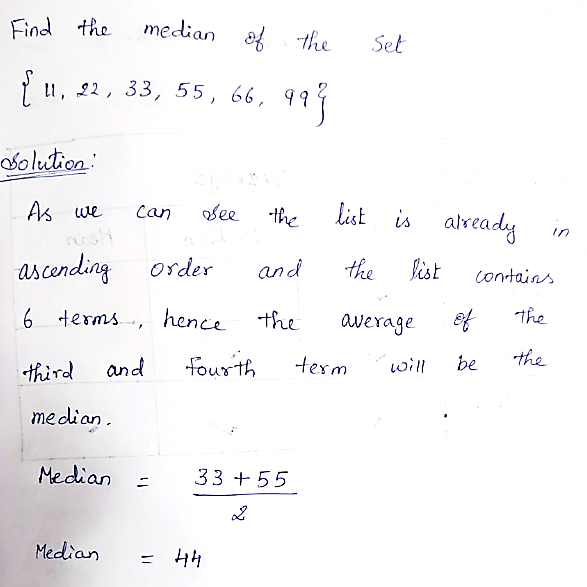 Find the median of the set
{ 11, 22, 33, 55, 66, 99}
Solution:
As we can see the list is already in
ascending order and the list contains
6 terms, hence the average of the
third and fourth term will be the
median.
Median = 33 + 55
2
Median = 44